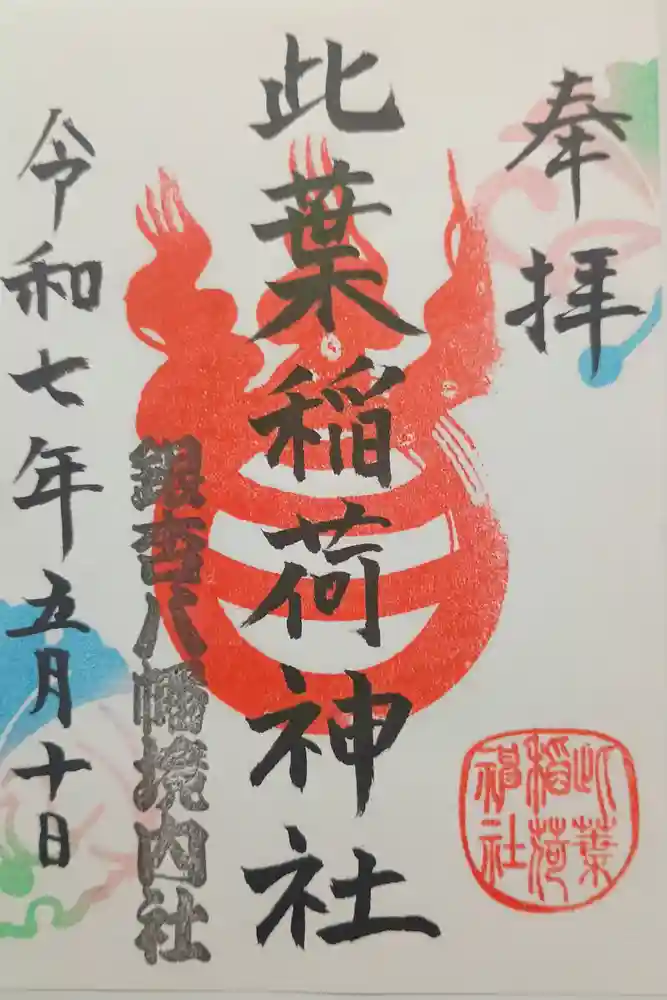 奉拝
此葉稲荷神社
此葉
稲荷
神社
銀杏八幡境内社
令和七年五月十日